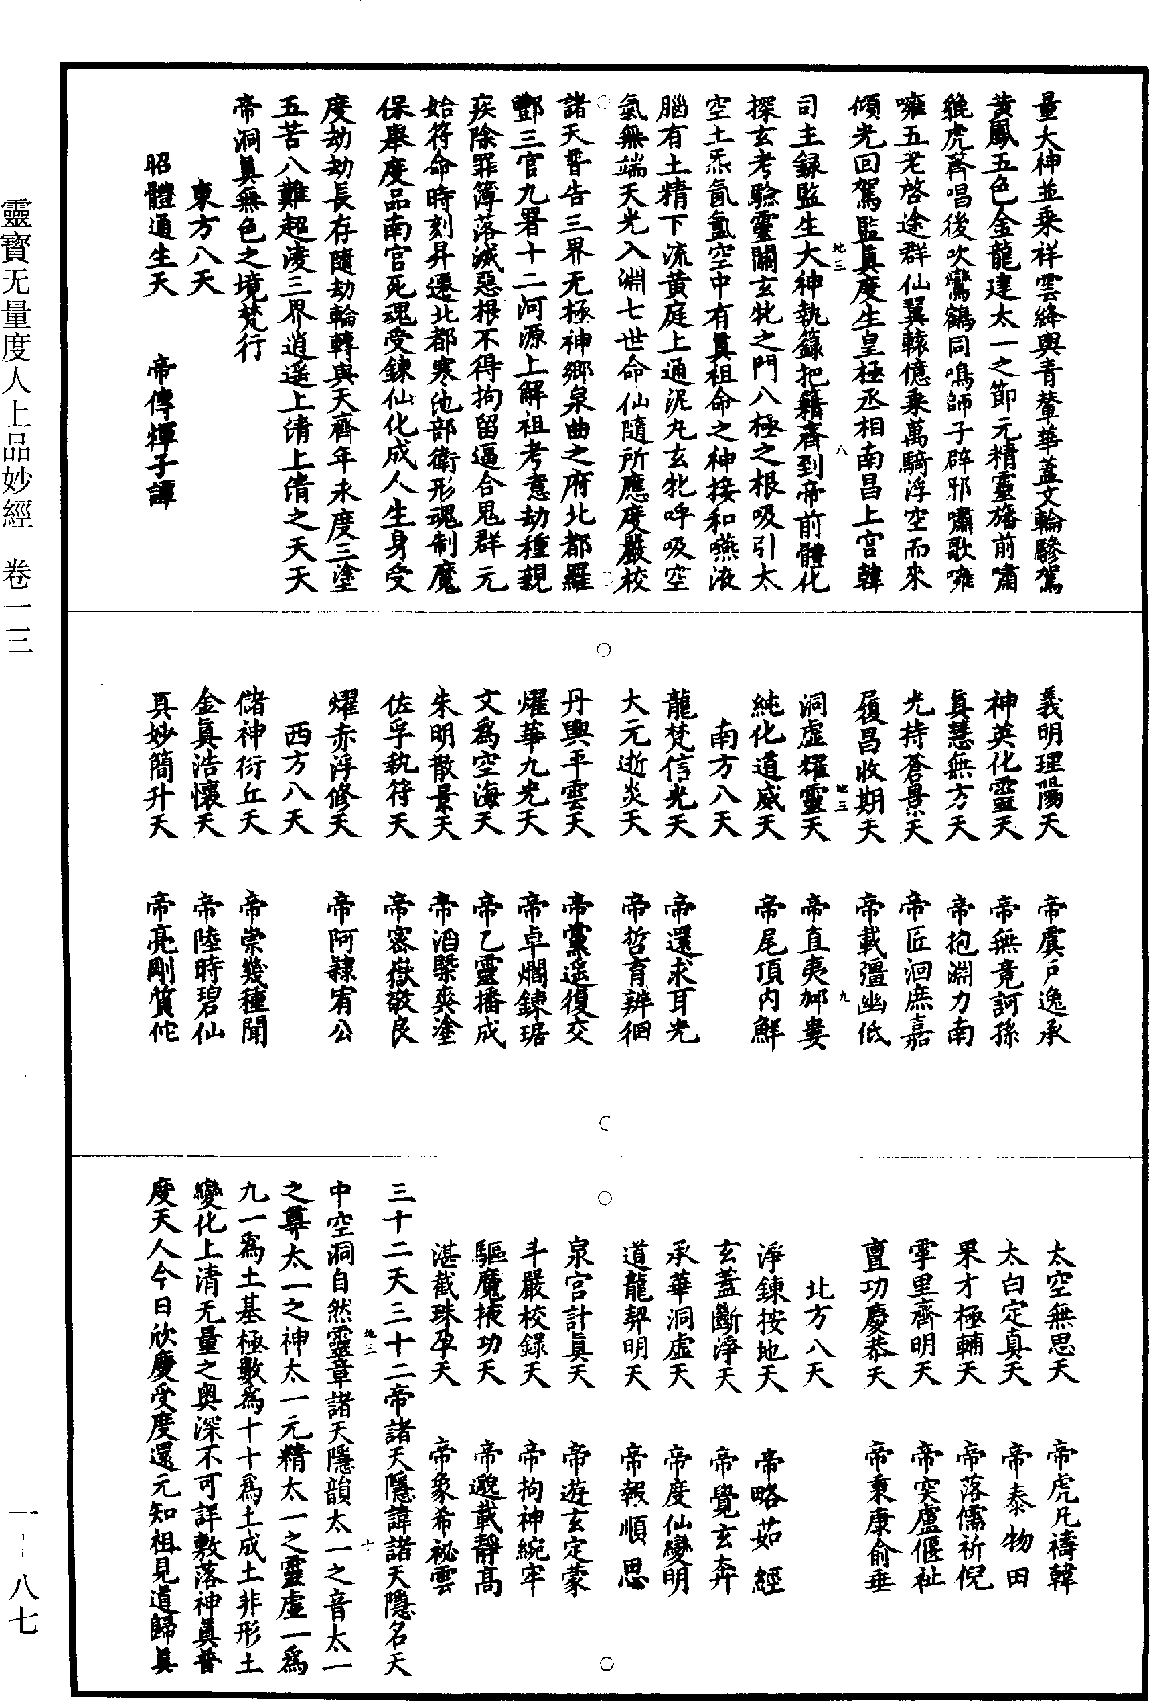 量大神並乘祥雲絳輿青輦華蓋文輪驂駕
黃鳳五色金龍建太一之節元精靈旛前嘯
龍虎齊唱後吹鸞鶴同鳴師子辟邪嘯歌嗈
嗈五老啓途群仙翼轅億乘萬騎浮空而來
傾光回駕監真度生皇極丞相南昌上宮韓
司主錄監生大神執籙把籍齊到帝前體化
探玄考驗靈關玄牝之門八極之根吸引太
空土炁氤氳空中有真祖命之神接和嚥液
腦有土精下流黃庭上通泥丸玄牝呼吸空
氣無端天光入淵七世命仙隨所應度嚴校
諸天普告三界无極神鄉泉曲之府北都羅
酆三官九署十二河源上解祖考億劫種親
疾除罪簿落滅惡根不得拘留逼合鬼群元
始符命時刻昇遷北都寒池部衛形魂制魔
保舉度品南宮死魂受鍊仙化成人生身受
度劫劫長存隨劫輪轉與天齊年永度三塗
五苦八難超凌三界逍遥上清上清之天天
帝洞真無色之境梵行
東方八天
昭體通生天 帝傳擇子譚
義明理陽天 帝虞戶逸承
神英化靈天 帝無竟訶孫
真慧無方天 帝抱淵力南
光持蒼景天 帝匠洄庶嘉
履昌收期天 帝載澶幽低
洞虛耀靈天 帝直夷郍婁
純化道威天 帝尾頂內鮮
南方八天
龍梵信光天 帝還求耳光
大元逝炎天 帝哲育辨徊
丹輿平雲天 帝黨遥復交
燿華九光天 帝卓爛鍊琚
文爲空海天 帝乙靈播成
朱明散景天 帝滔槩奭塗
佐孚執符天 帝審嶽敬良
燿赤浮修天 帝阿隸宥公
西方八天
儲神衍丘天 帝崇幾種聞
金真浩懷天 帝陸時碧仙
真妙簡升天 帝亮剛質佗
太空無思天 帝虎凡禱韓
太白定真天 帝泰物田
果才極輔天 帝落儒祈倪
掌里齊明天 帝突盧偃祉
亶功慶恭天 帝秉康俞垂
北方八天
淨鍊按地天 帝略茹經
玄蓋斷淨天 帝覺玄奔
承華洞虛天 帝度仙變明
道龍羿明天 帝報順思
泉宮計真天 帝遊玄定蒙
斗嚴校錄天 帝拘神綩牢
驅魔掖功天 帝邈載靜高
湛截珠孕天 帝象希祕雲
三十二天三十二帝諸天隱諱諸天隱名天
中空洞自然靈章諸天隱韻太一之音太一
之尊太一之神太一元精太一之靈虛一爲
九一爲土基極數爲十十爲土成土非形土
變化上清无量之奧深不可詳敷落神真普
度天人今日欣慶受度還元知祖見道歸真
靈寶无量度人上品妙經 卷一三
一 - 八七